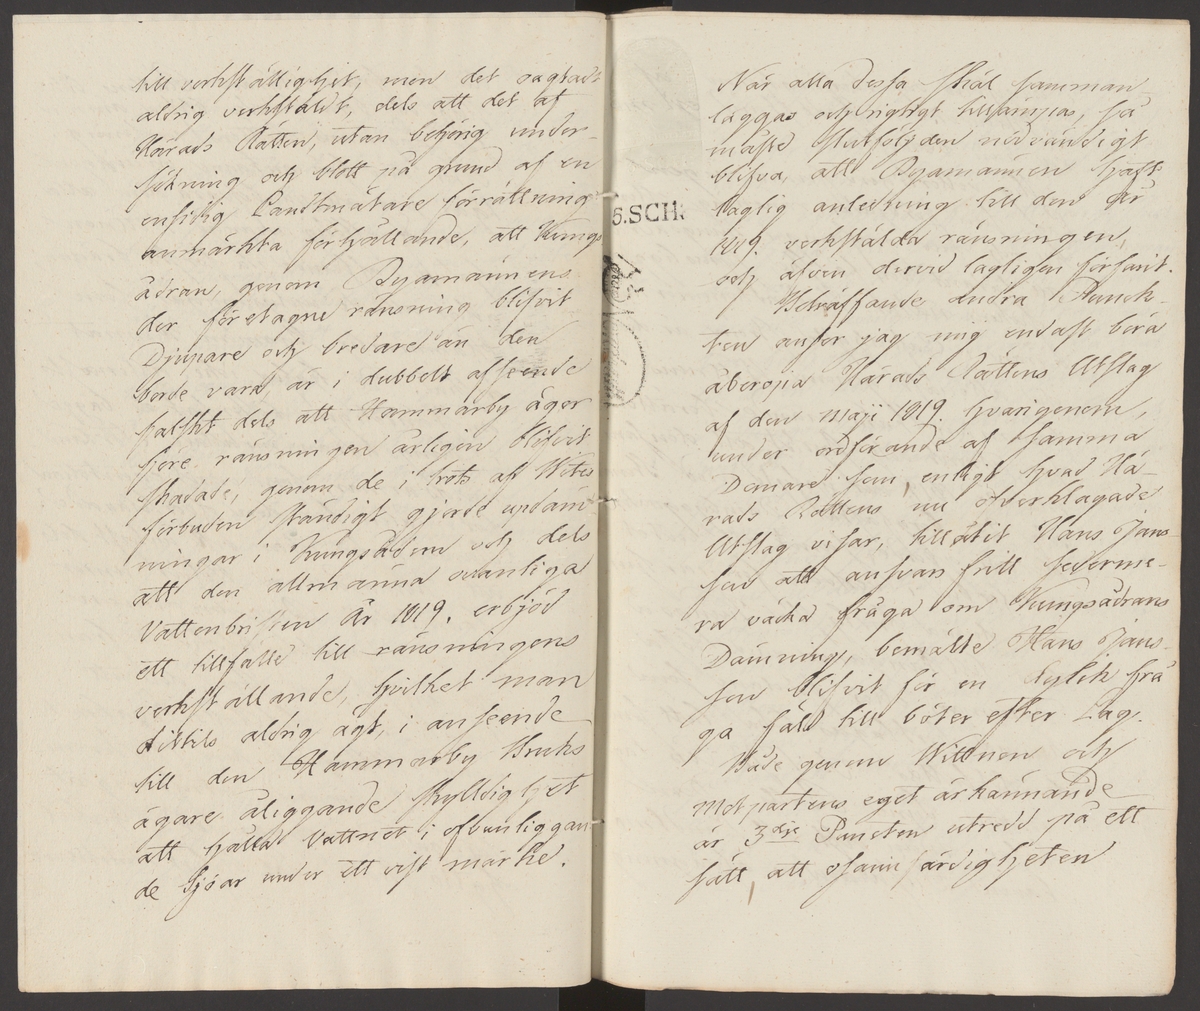 till verkställighet, men det oagtadt
aldrig verkstäldt, dels att det af
Härads Rätten, utan behörig under-
sökning och blott på grund af en
ensidig Landtmätare förrättning
anmärkta förhållande, att Kungs
ådran, genom Byamännens
der företagne ränsning blifvit
Djupare och bredare än den
borde vara, är i dubbelt afseende
falskt dels att Hammarby ägor
före ränsningen årligen blifvit
skadade, genom de i trots af Wites
förbuden ständigt gjorde updäm-
ningar i Kungsådern och dels
att den allmänna ovanliga
Vattenbristen År 1819. erbjöd
ett tillfälle till ränsningens
verkställande, hvilket man
dittils aldrig ägt, i anseende
till den Hammarby Bruks
ägare åliggande skyldighet
att hålla Vattnet i ofvanliggan-
de Sjöar under ett vist märke.
När alla dessa skäl samman
läggas och rigtigt tillämpas, så
måste Slutföljden nödvändigt
blifva, att Byamännen haft
laglig anledning till den År
1819. verkstälda ränsningen,
och äfven dervid lagligen förfarit.
Beträffande andra Punck-
ten anser jag mig endast böra
åberopa Härads Rättens Utslag
af den Maji 1819. hvarigenom,
under ordförande af samma
Domare som, enligt hvad Hä-
rads Rättens nu öfverklagade
Utslag visar, tillåtit Hans Jans-
son att ansvars fritt sederme-
ra väcka fråga om Kungsådrans
Dämning, bemälte Hans Jans-
son blifvit för en dylik frå
ga fäld till böter efter Lag.
Både genom Wittnen och
Motpartens eget ärkännande
är 3dje Puncten utredd på ett
sätt, att osannfärdigheten
5.SCH.